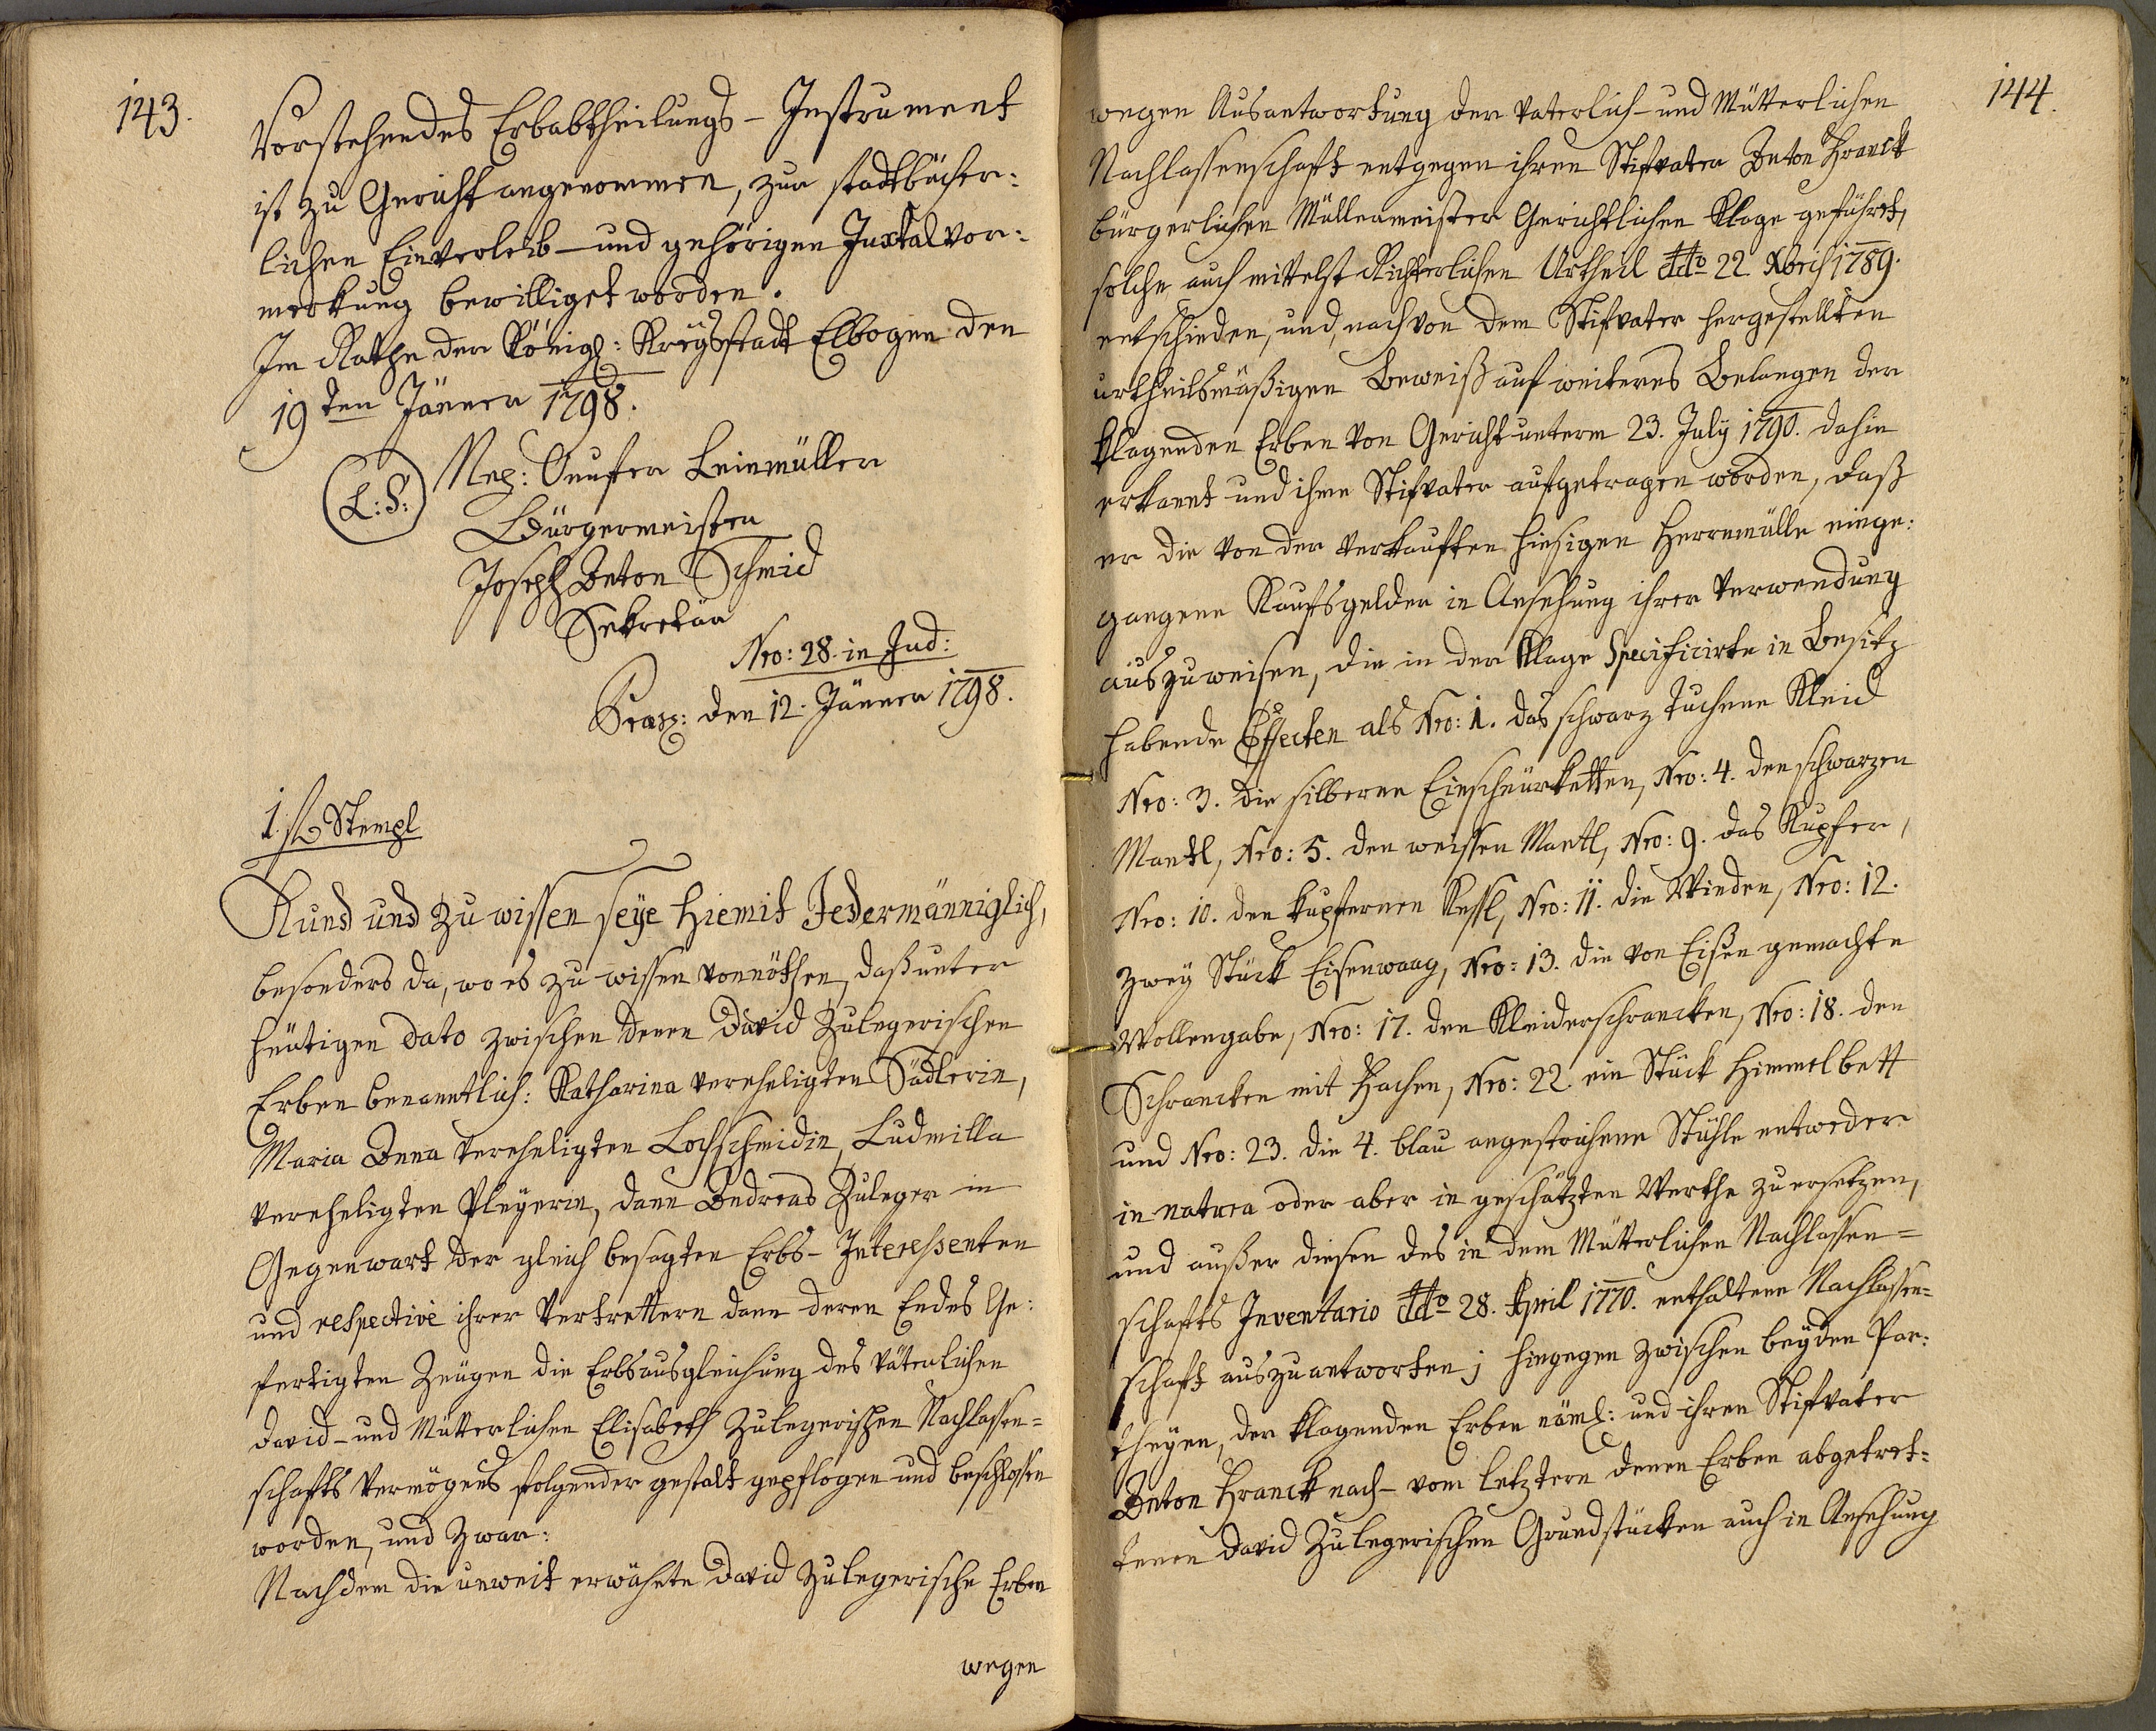 143.
Vorstehendes Erbabtheilungs-Instrument
ist zu Gericht angenommen, zur stadtbücher:
lichen Einverleib- und gehörigen Juxtalvor:
merkung bewilliget worden.
Im Rathe der Königl: Kreysstadt Elbogen den
19ten Jänner 1798.
(L:S:) Nep: Onufer Leinmüller
Bürgermeister
Joseph Anton Schmid
Sekretär
Nro: 28. in Jud:
Praes: den 12. Jänner 1798.
1 f Stempl
Kund und zu wissen seye hiemit Jedermänniglich,
besonders da, wo es zu wissen vonnöthen, daß unter
heütigen dato zwischen denen David Zulegerischen
Erben benanntlich: Katharina vereheligten Sädlerin,
Maria Anna vereheligten Lochschmidin, Ludmilla
vereheligten Pleyerin, dann Andreas Zuleger in
Gegenwart der gleich besagten Erbs-Interessenten
und respective ihrer Vertrettern dann deren Endes Ge:
fertigten Zeügen die Erbsausgleichung des väterlichen
David- und Mütterlichen Elisabeth Zulegerischen Nachlassen=
schafts Vermögens folgender gestalt gepflogen und beschlossen
worden, und zwar:
Nachdem die unweit erwähnte David Zulegerische Erben
wegen
144.
wegen Ausantwortung der Vaterlich- und Mütterlichen
Nachlassenschaft entgegen ihren Stifvater Anton Franck
bürgerlichen Müllermeister Gerichtlichen Klage geführt,
solche auch mittelst Richterlichen Urtheil ddto 22 Xbris 1789.
entschieden, und, nach von dem Stifvater hergestellten
urtheilsmäßigen Beweiß auf weiteres Belangen der
klagenden Erben von Gericht unterm 23. July 1790. dahin
erkannt und ihme Stifvater aufgetragen worden, daß
er die von der verkauften hiesigen Herrnmülle einge:
gangene Kaufsgelder in Ansehung ihrer Verwendung
auszuweisen, die in der Klage Specificirte in Besitz
habende Effecten als Nro: 1. das schwarz tuchene Kleid
Nro: 3. die silberne Einschnürketten, Nro: 4. den schwarzen
Mantl, Nro: 5. den weissen Mantl, Nro: 9. das Kupfer,
Nro: 10. den kupfernen Kessl, Nro: 11. die Winden, Nro: 12.
zwey Stück Eisenwaag, Nro: 13. die von Eißen gemachte
Wollengabe, Nro: 17. den Kleiderschrancken, Nro: 18. den
Schrancken mit Fachen, Nro: 22. ein Stück Himmelbett
und Nro: 23. die 4. blau angestrichene Stühle entweder
in natura oder aber in geschätzten Werthe zu ersetzen,
und außer diesen des in dem Mütterlichen Nachlassen=
schafts Inventario ddto 28. April 1770. enthaltene Nachlassen=
schaft auszuantworten; hingegen zwischen beyden Par:
theyen, der klagenden Erben näml: und ihren Stifvater
Anton Franck nach- vom letztern denen Erben abgetret=
tenen David Zulegerischen Grundstücken auch in Ansehung